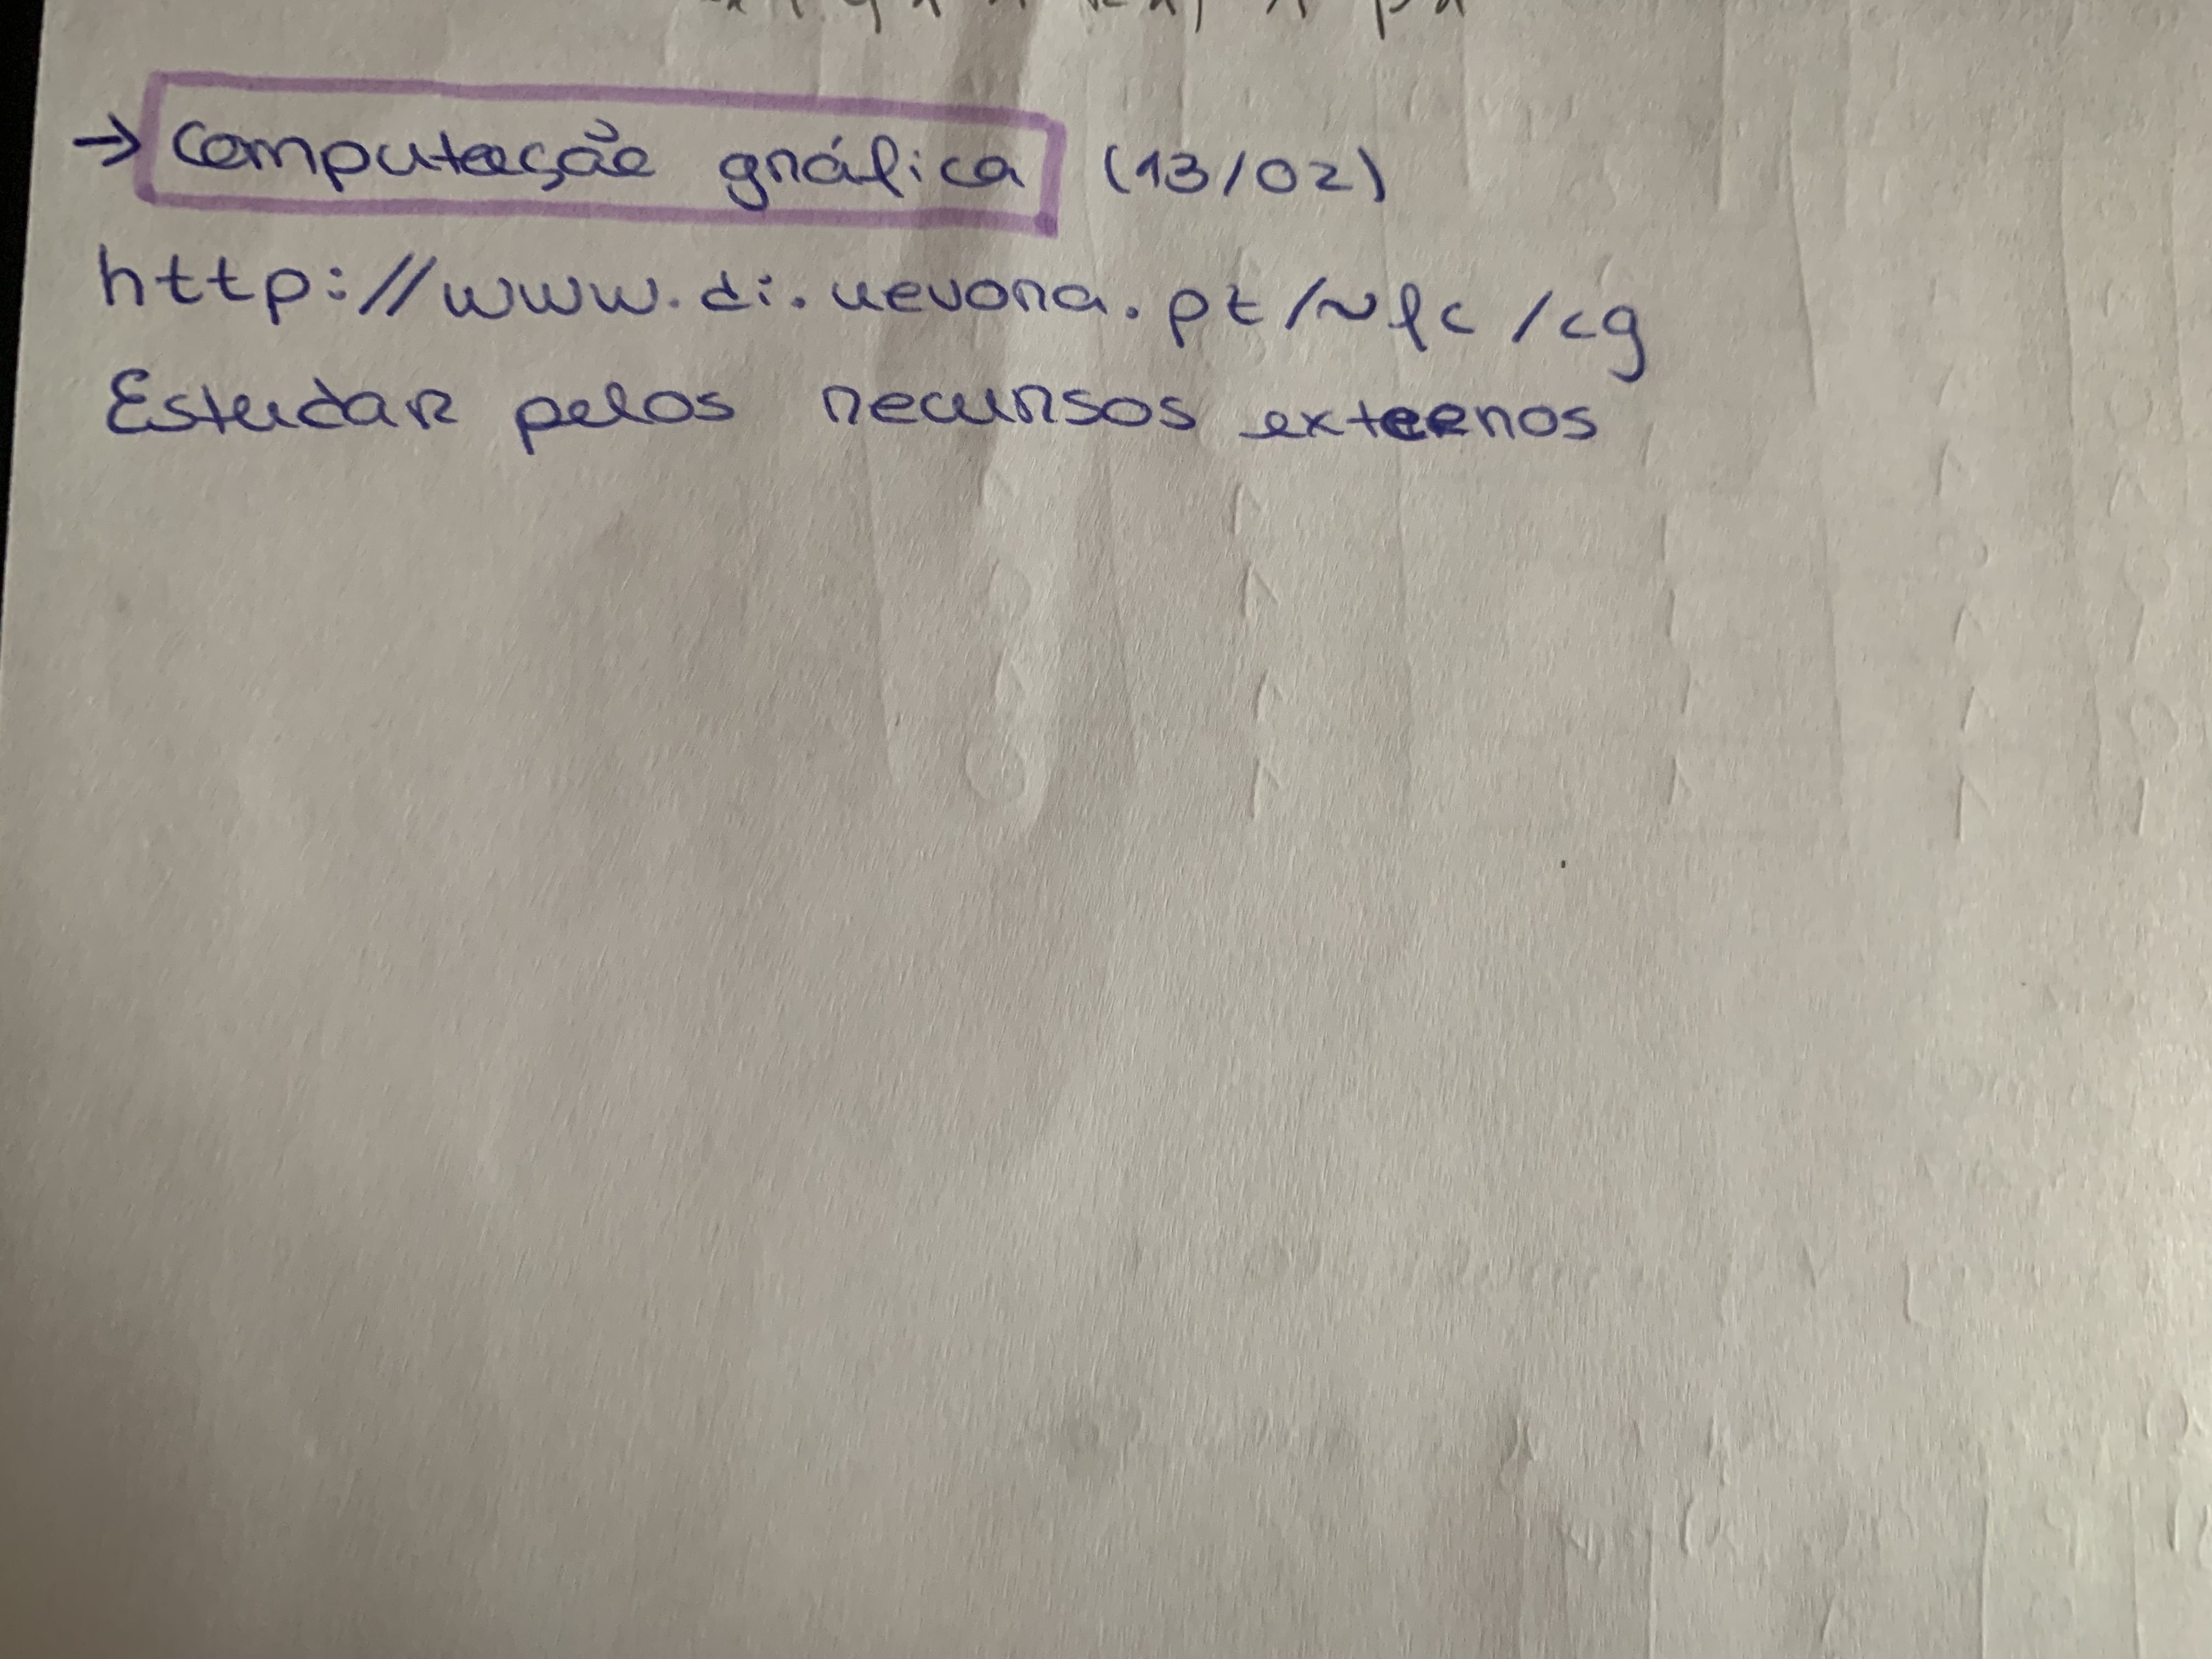 → Computação gráfica (13/02)
http://www.di.uevora.pt/~fc/cg
Estudar pelos recursos externos